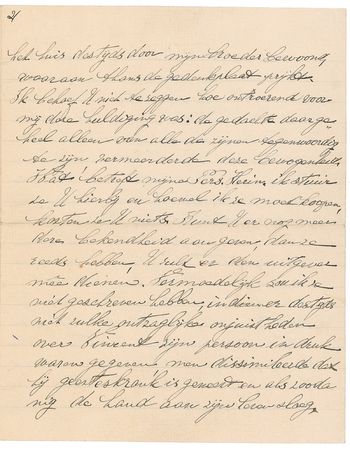 2/
het huis destijds door mijn broeder bewoond,
waaraan thans de gedenkplaat prijkt.
Ik behoef U niet te zeggen hoe ontroerend voor
mij deze huldiging was: de gedachte daar ge
heel alleen van alle de zijnen tegenwoordig
te zijn vermeerderde deze bewogenheid.
Wat betreft mijne Pers. Herin. ik stuur
ze U hierbij en hoewel ik ze moet
kosten ze U niets. Kunt U er nog meer
dere bekendheid aan geven, dan ze
reeds hebben, U zult er den uitgever
mêe dienen. Vermoedelijk zou ik ze
niet geschreven hebben, indien er destijds
niet zulke ontzaglijke onjuistheden
over Vincent zijn persoon in druk
waren gegeven. men dissimileerde dat
hij geesteskrank is geweest en als zooda
nig de hand aan zijn leven sloeg.